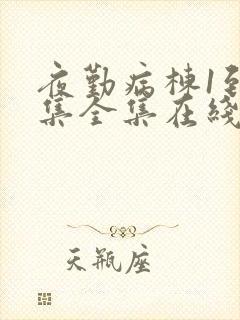 夜勤病栋1到
集全集在线
天瓶座